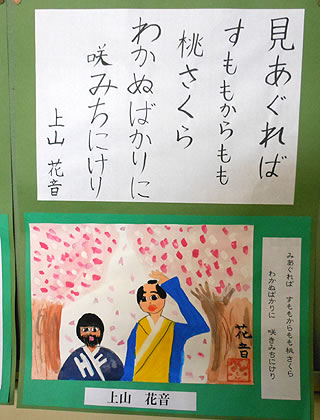 見あぐれば
すももからもも
桃さくら
わかぬばかりに
咲みちにけり
上山 花音
みあぐれば すももからもも桃さくら
わかぬばかりに 咲きみちにけり
花音
HF
上山 花音